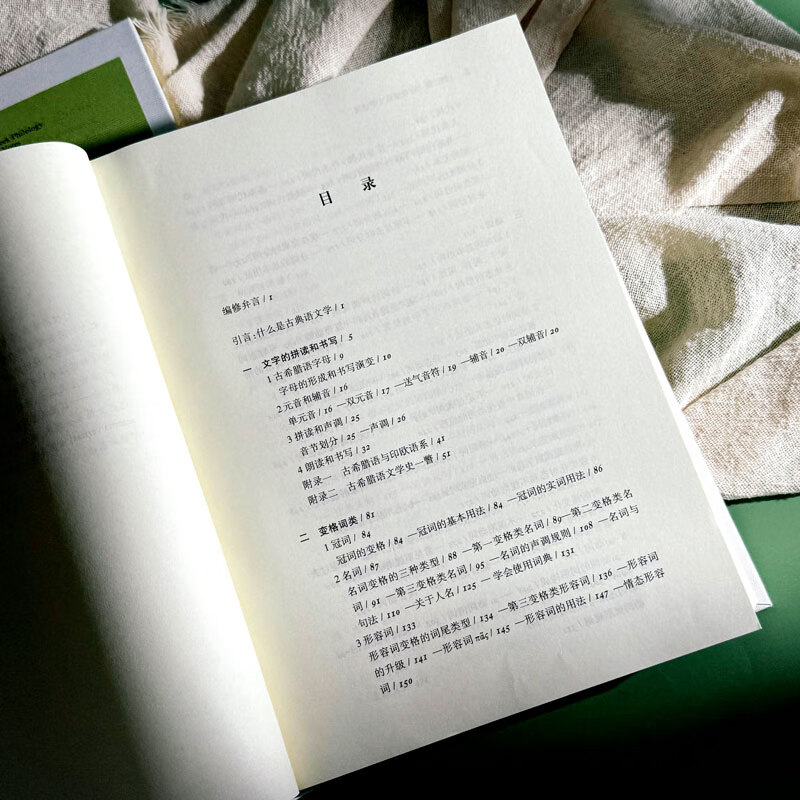 Philology
目 录
编修弁言 / 1
引言:什么是古典语文学 / 1
一 文字的拼读和书写 / 5
1 古希腊语字母 / 9
字母的形成和书写演变 / 10
2 元音和辅音 / 16
单元音 / 16 —双元音 / 17 —送气音符 / 19 —辅音 / 20 —双辅音 / 20
3 拼读和声调 / 25
音节划分 / 25 —声调 / 26
4 朗读和书写 / 32
附录一 古希腊语与印欧语系 / 41
附录二 古希腊语文学史一瞥 / 51
二 变格词类 / 81
1 冠词 / 84
冠词的变格 / 84 —冠词的基本用法 / 84 —冠词的实词用法 / 86
2 名词 / 87
名词变格的三种类型 / 88 —第一变格类名词 / 89 —第二变格类名
词 / 91 —第三变格类名词 / 95 —名词的声调规则 / 108 —名词与
句法 / 110 —关于人名 / 125 —学会使用词典 / 131
3 形容词 / 133
形容词变格的词尾类型 / 134 —第三变格类形容词 / 136 —形容词
的升级 / 141 —形容词 πᾶς / 145 —形容词的用法 / 147 —情态形容
词 / 150